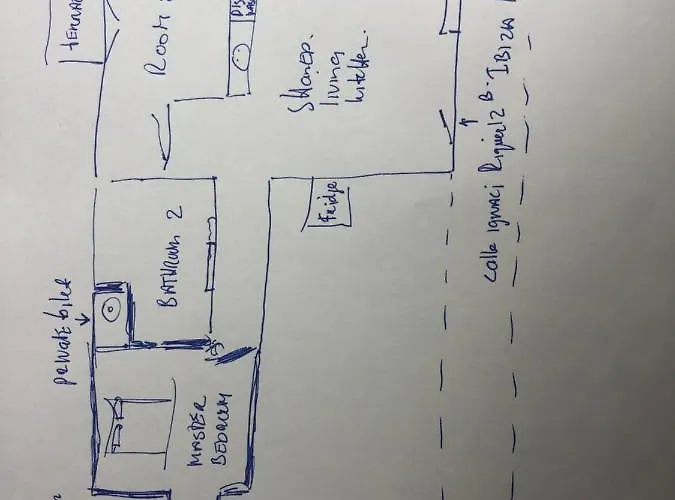 TERRAC
ROOM
DIS
Shared.
living
kitchen.
calle Ignaci Riquer 12 B. IBIZA
Fridge
BATHROOM 2
private toilet
MASTER
BEDROOM